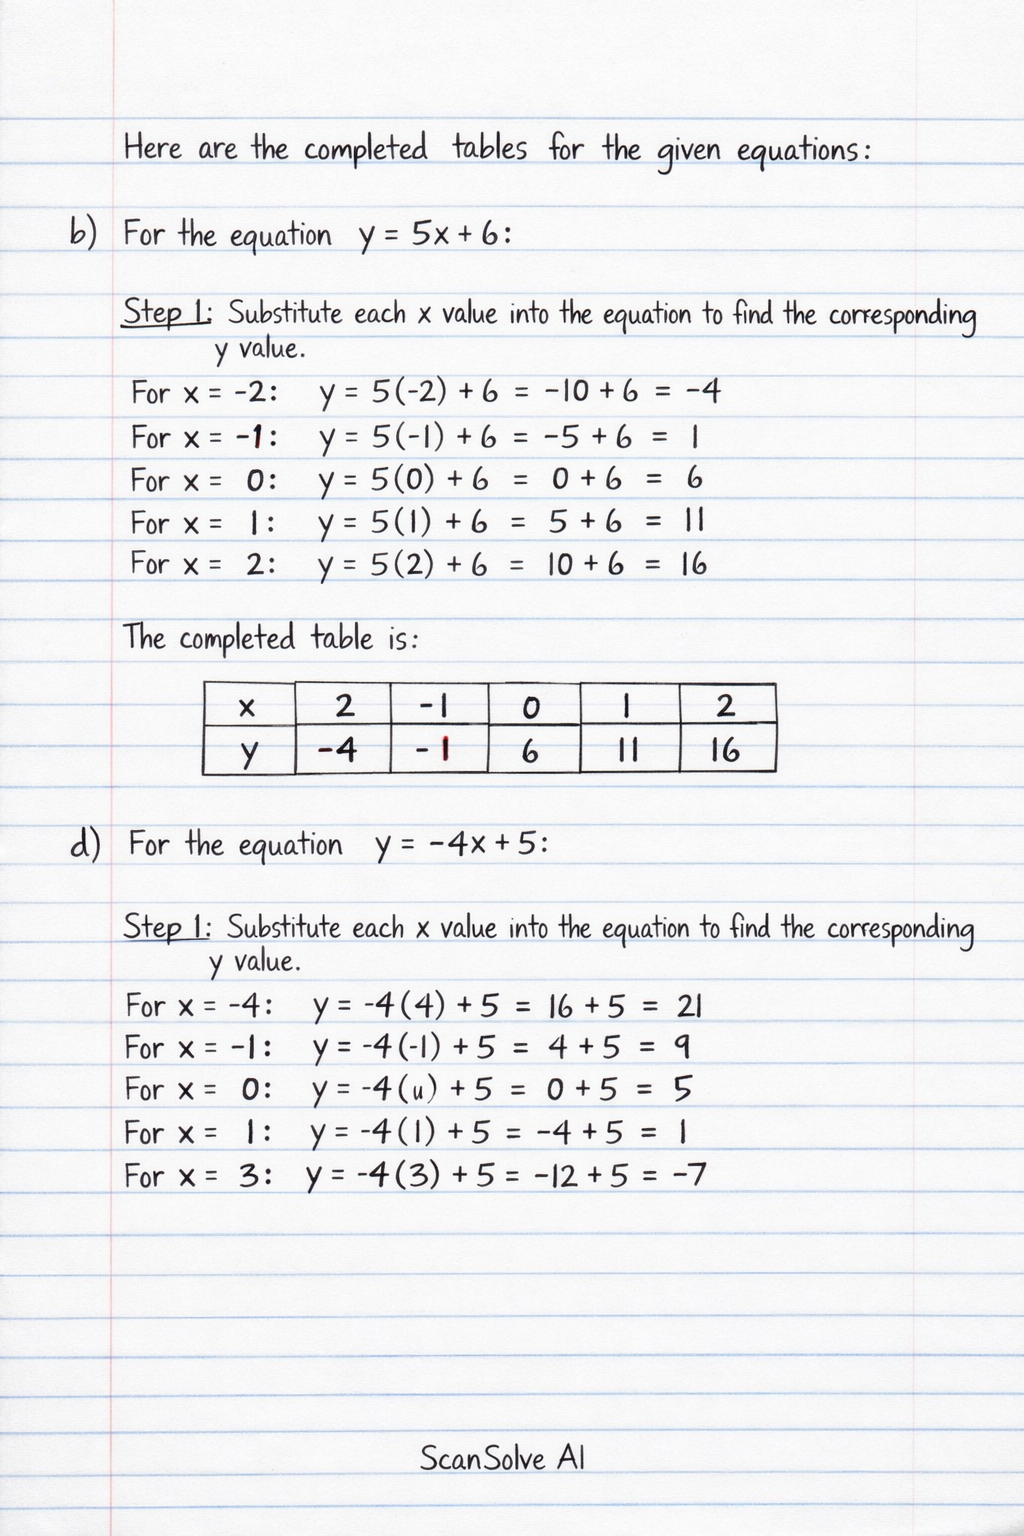 Here are the completed tables for the given equations:
b) For the equation y = 5x + 6:
Step 1: Substitute each x value into the equation to find the corresponding
y value.
For x = -2: y = 5(-2) + 6 = -10 + 6 = -4
For x = -1: y = 5(-1) + 6 = -5 + 6 = 1
For x = 0: y = 5(0) + 6 = 0 + 6 = 6
For x = 1: y = 5(1) + 6 = 5 + 6 = 11
For x = 2: y = 5(2) + 6 = 10 + 6 = 16
The completed table is:
x 2 -1 0 1 2
y -4 -1 6 11 16
d) For the equation y = -4x + 5:
Step 1: Substitute each x value into the equation to find the corresponding
y value.
For x = -4: y = -4(4) + 5 = 16 + 5 = 21
For x = -1: y = -4(-1) + 5 = 4 + 5 = 9
For x = 0: y = -4(u) + 5 = 0 + 5 = 5
For x = 1: y = -4(1) + 5 = -4 + 5 = 1
For x = 3: y = -4(3) + 5 = -12 + 5 = -7
ScanSolve AI